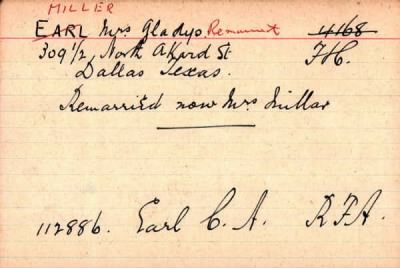 MILLER
EARL Mrs Gladys. Remarried 4168
309 1/2, North Akard St. F.H.
Dallas Texas.
Remarried now Mrs Millar
112886. Earl C. A. R.F.A.